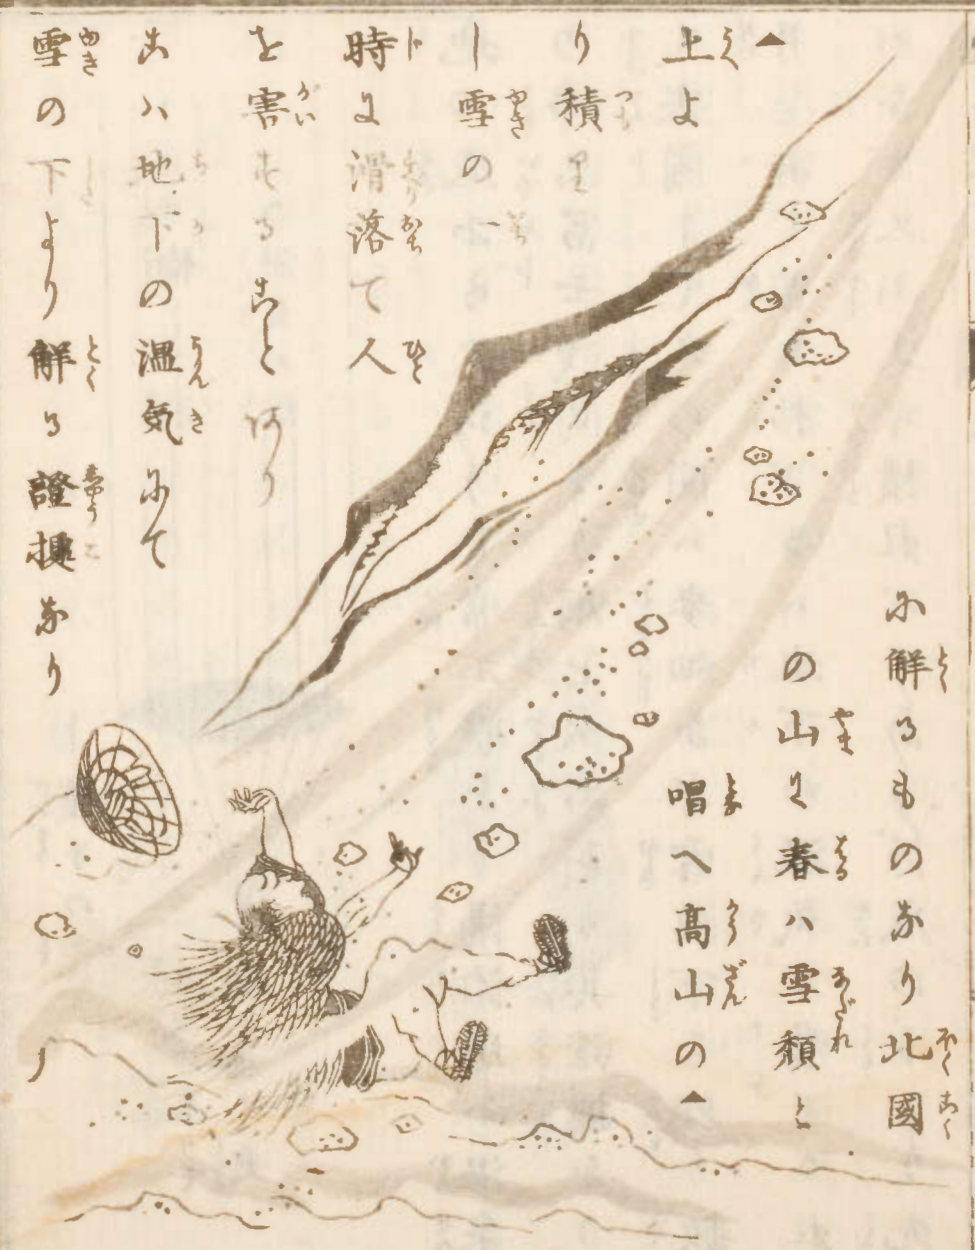 に解るものなり北國
の山に春ハ雪頽と
唱へ高山の▲
▲上よ
り積り
し雪の一
時に滑落て人
を害することあり
こハ地下の温気にて
雪の下より解る證據なり